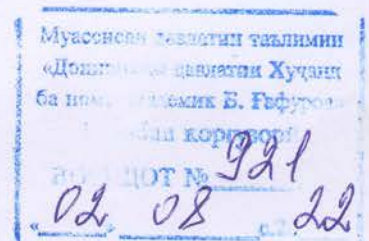 Муассисаи давлатии таълимии
«Донишгоҳи давлатии Хуҷанд
ба номи академик Б. Ғафуров»
коргузорӣ
№ 921
"02 08 с.2 22